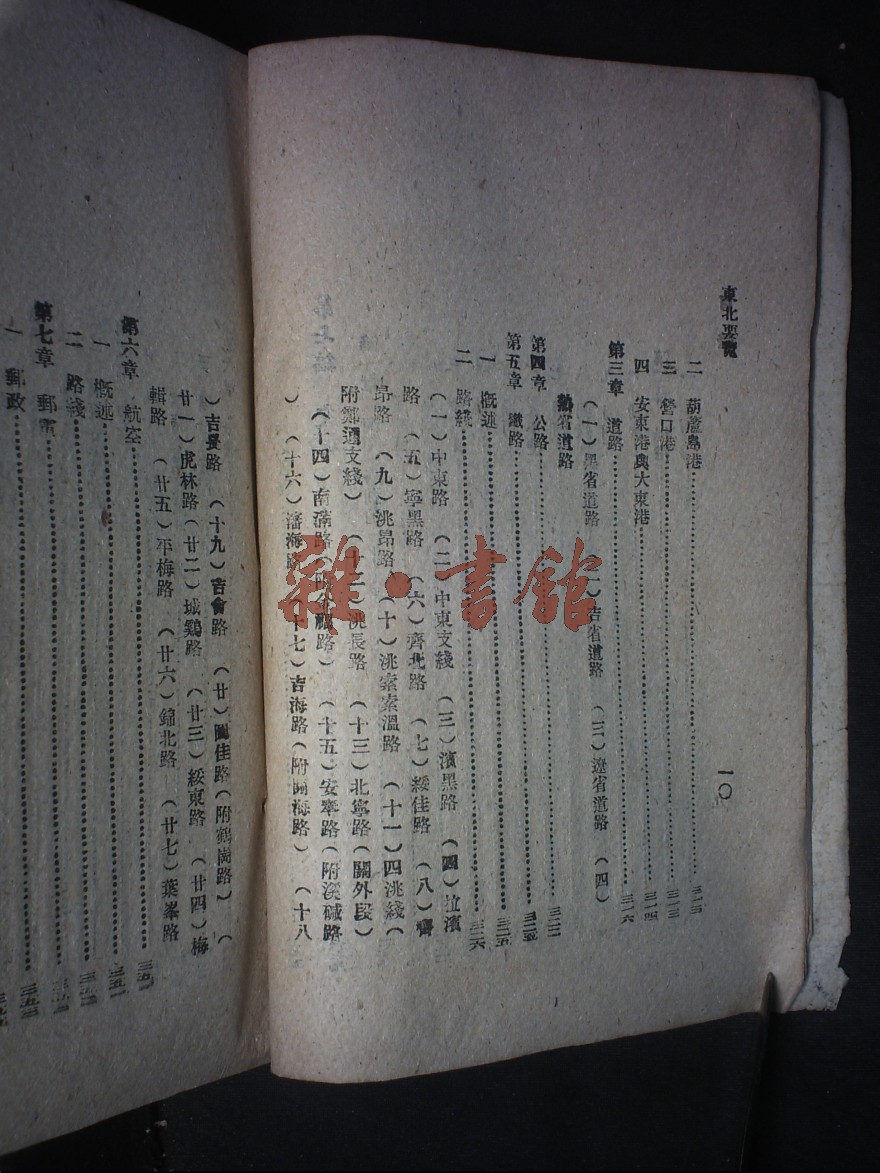 東北要覽
一〇
二 葫蘆島港
三 營口港
四 安東港與大東港
第三章 道路
(一)黑省道路 (二)吉省道路 (三)遼省道路 (四)
熱省道路
第四章 公路
第五章 鐵路
一 概述
二 路綫
(一)中東路 (二)中東支綫 (三)濱黑路 (四)拉濱
路 (五)寧黑路 (六)齊北路 (七)綏佳路 (八)齊
昂路 (九)洮昂路 (十)洮索索溫路 (十一)四洮綫(
附鄭通支綫) (十二)洮長路 (十三)北寧路(關外段)
(十四)南滿路 (十五)安奉路(附溪碱路
) (十六)瀋海路 (十七)吉海路(附開海路) (十八
)吉長路 (十九)吉會路 (廿)圖佳路(附鶴崗路) (
廿一)虎林路 (廿二)城鷄路 (廿三)綏東路 (廿四)梅
輯路 (廿五)平梅路 (廿六)錦北路 (廿七)葉峯路
第六章 航空
一 概述
二 路綫
第七章 郵電
一 郵政
雜·書館